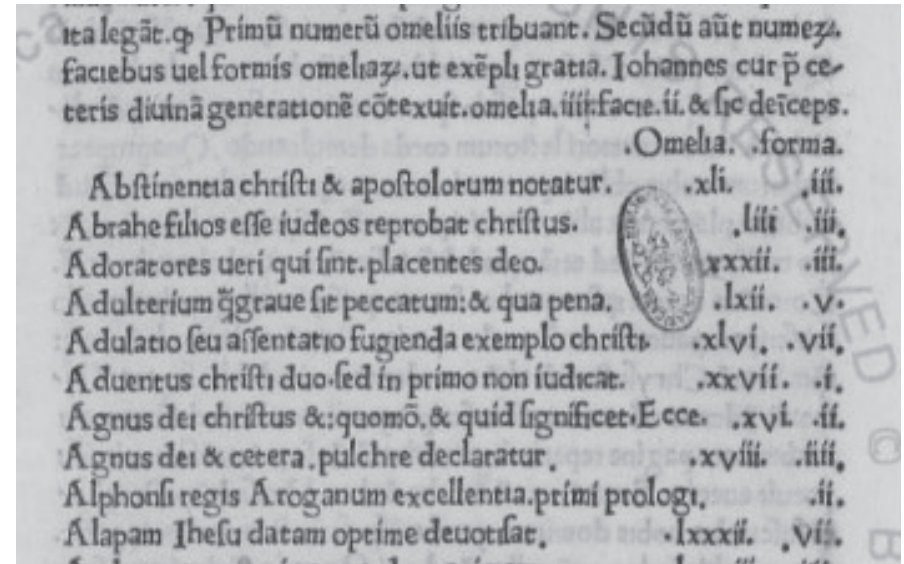 ita legāt. ꝙ Primū numerū omeliis tribuant. Secūdū aūt numeꝝ.
faciebus uel formis omeliaꝝ. ut exēpli gratia. Iohannes cur p̄ ce-
teris diuinā generationē cōtexuit. omelia. iiii. facie. ii. & sic deīceps.
.Omelia. .forma.
Abſtinentia chriſti & apoſtolorum notatur. .xli. .iii.
Abrahe filios eſſe iudeos reprobat chriſtus. .liii .iii.
Adoratores ueri qui ſint. placentes deo. .xxxii. .iii.
Adulterium q̄graue ſit peccatum: & qua pena. .lxii. .v.
Adulatio ſeu aſſentatio fugienda exemplo chriſti. .xlvi. .vii.
Aduentus chriſti duo. ſed in primo non iudicat. .xxvii. .i.
Agnus dei chriſtus &: quomō. & quid ſignificet. Ecce. .xvi. .ii.
Agnus dei & cetera. pulchre declaratur. .xviii. .iiii.
Alphonſi regis Aroganum excellentia. primi prologi. .ii.
Alapam Iheſu datam optime deuotiſat. .lxxxii. .vii.